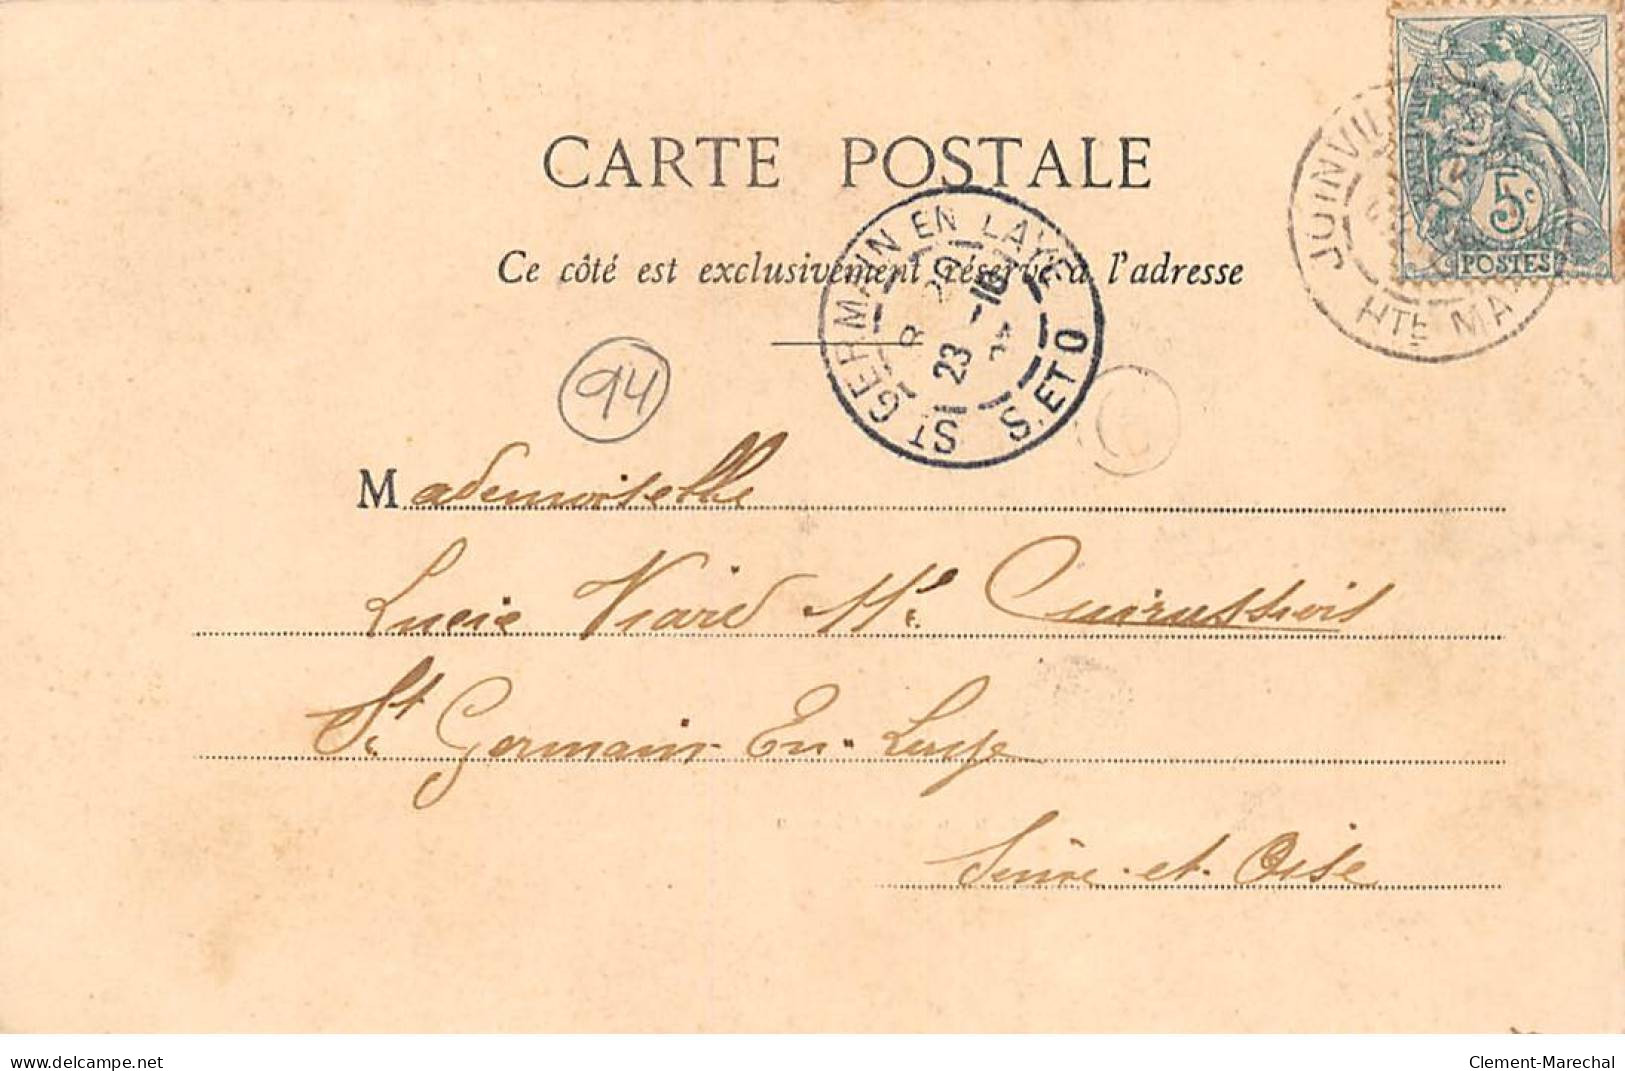 CARTE POSTALE
Ce côté est exclusivement réservé à l'adresse
5c
POSTES
JOINVIL
HTE MA
ST GERMAIN EN LAYE
23
S. ET O
94
Mademoiselle
Lucie Viard 11 e
St Germain-En-Laye
Seine-et-Oise
www.delcampe.net
Clement-Marechal